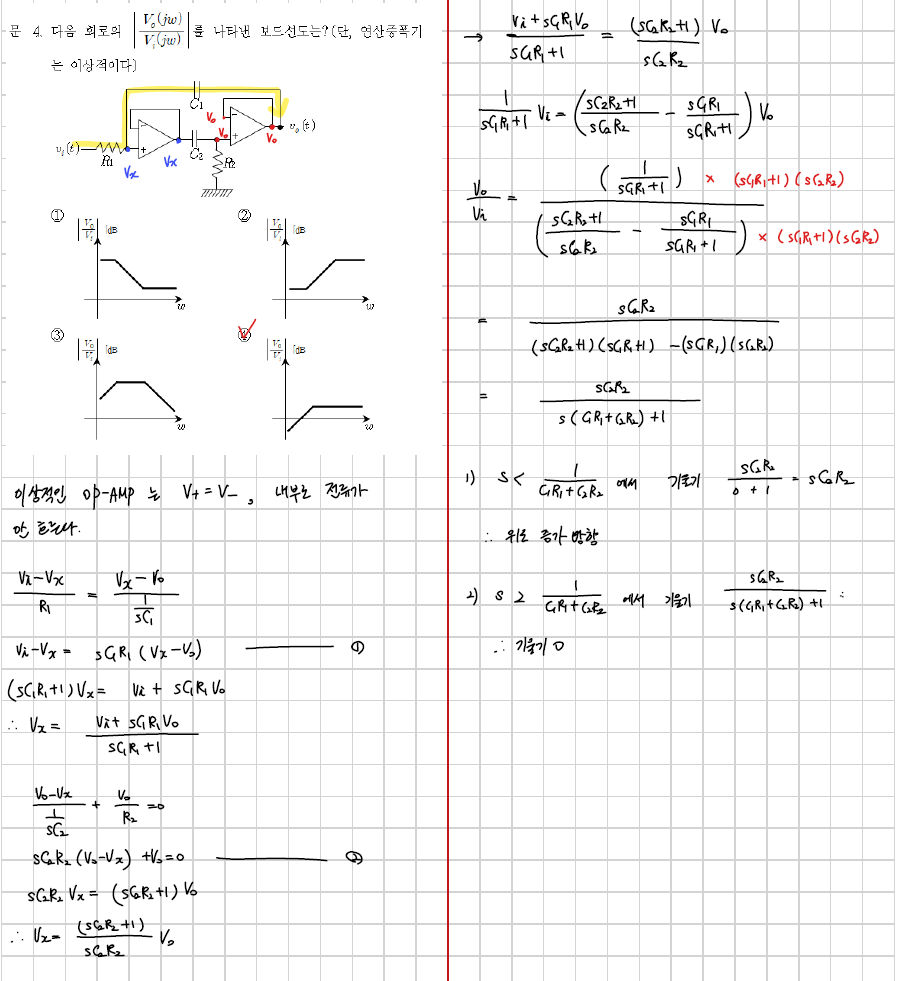 문 4. 다음 회로의 |V_o(jw)/V_i(jw)|를 나타낸 보드선도는?(단, 연산증폭기
는 이상적이다)
C_1
V_o
v_i(t) R_1 + C_2 + v_o(t)
V_x V_x V_o V_o
R_2
① |V_o/V_i| [dB w
② |V_o/V_i| [dB w
③ |V_o/V_i| [dB w
④ |V_o/V_i| [dB w
이상적인 OP-AMP 는 V+ = V-, 내부로 전류가
안 흐른다.
(Vi-Vx)/R1 = (Vx-Vo)/(1/sC1)
Vi-Vx = sC1R1(Vx-Vo) ①
(sC1R1+1)Vx = Vi + sC1R1Vo
∴ Vx = (Vi + sC1R1Vo)/(sC1R1+1)
(Vo-Vx)/(1/sC2) + Vo/R2 = 0
sC2R2(Vo-Vx) + Vo = 0 ②
sC2R2Vx = (sC2R2+1)Vo
∴ Vx = (sC2R2+1)/(sC2R2) Vo
→ (Vi+sC1R1Vo)/(sC1R1+1) = (sC2R2+1)/(sC2R2) Vo
1/(sC1R1+1) Vi = ((sC2R2+1)/(sC2R2) - sC1R1/(sC1R1+1)) Vo
Vo/Vi = (1/(sC1R1+1)) × (sC1R1+1)(sC2R2) / ((sC2R2+1)/(sC2R2) - sC1R1/(sC1R1+1)) × (sC1R1+1)(sC2R2)
= sC2R2/((sC2R2+1)(sC1R1+1) - (sC1R1)(sC2R2))
= sC2R2/(s(C1R1+C2R2)+1)
1) s < 1/(C1R1+C2R2) 에서 기울기 sC2R2/(0+1) = sC2R2
∴ 위로 증가 방향
2) s ≥ 1/(C1R1+C2R2) 에서 기울기 sC2R2/(s(C1R1+C2R2)+1) :
∴ 기울기 0